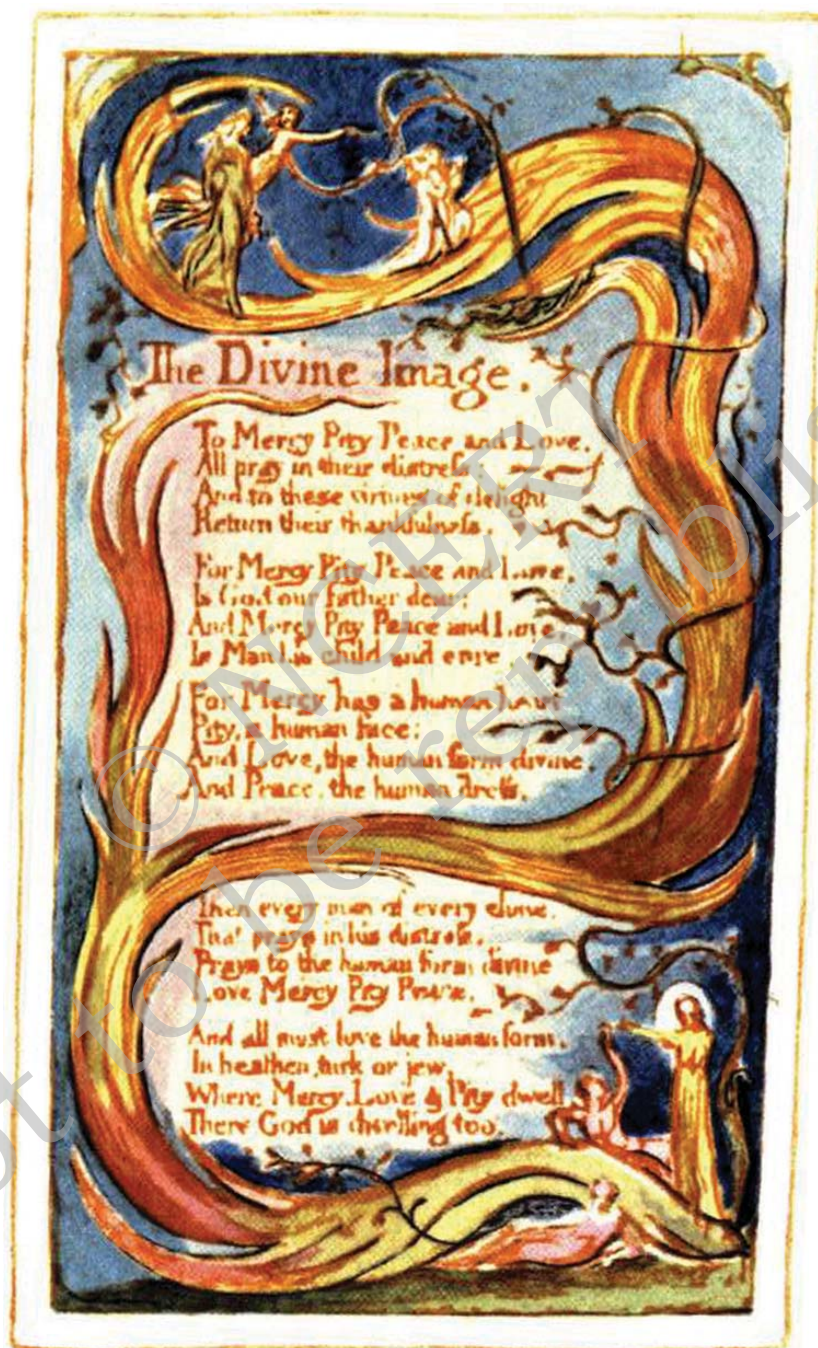 The Divine Image.
To Mercy Pity Peace and Love,
All pray in their distress:
And to these virtues of delight
Return their thankfulness.
For Mercy Pity Peace and Love,
Is God our father dear:
And Mercy Pity Peace and Love,
Is Man his child and care.
For Mercy has a human heart
Pity, a human face:
And Love, the human form divine,
And Peace, the human dress.
Then every man of every clime,
That prays in his distress,
Prays to the human form divine
Love Mercy Pity Peace.
And all must love the human form,
In heathen, turk or jew.
Where Mercy, Love & Pity dwell,
There God is dwelling too.
© NCERT
not to be republis